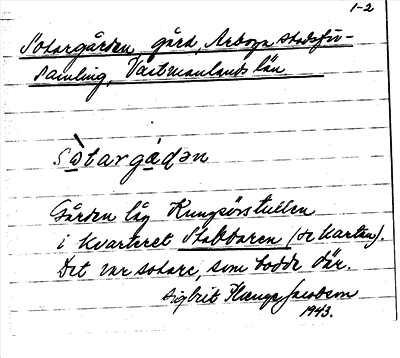 1-2
Sotargården, gård, Arboga stadsför-
samling, Västmanlands län
Sò̩targa̩ḍən
Gården låg Kungsörstullen
i kvarteret Stabbaren (se kartan).
Det var sotare, som bodde där.
Sigbrit Plænge Jacobson
1943.